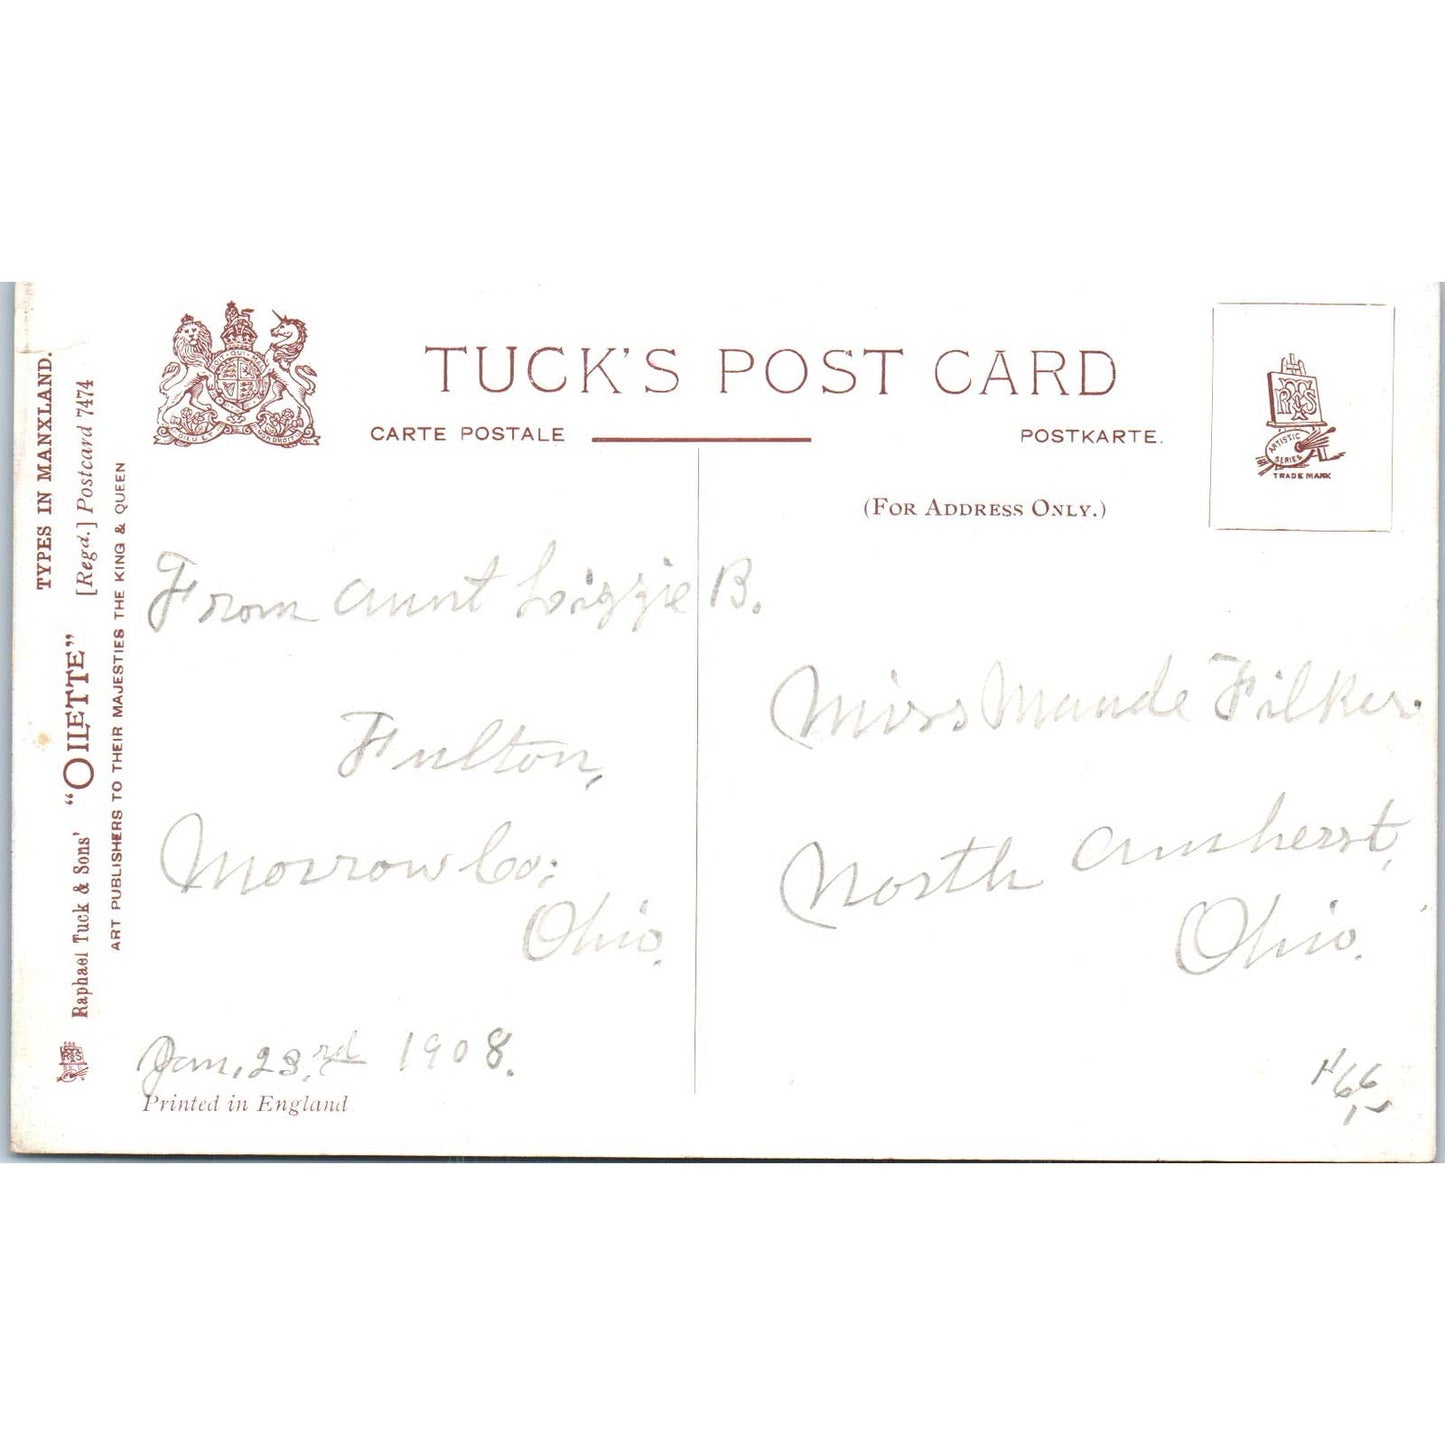 TUCK'S POST CARD
CARTE POSTALE
POSTKARTE.
(FOR ADDRESS ONLY.)
RTS
ARTISTIC
SERIES
TRADE MARK
TYPES IN MANXLAND.
[Regd.] Postcard 7474
Raphael Tuck & Sons' "OILETTE"
ART PUBLISHERS TO THEIR MAJESTIES THE KING & QUEEN
From Aunt Lizzie B.
Fulton,
Morrow Co;
Ohio.
Jan. 23, rd 1908.
Printed in England
Miss Maude Filker.
North Amherst,
Ohio.